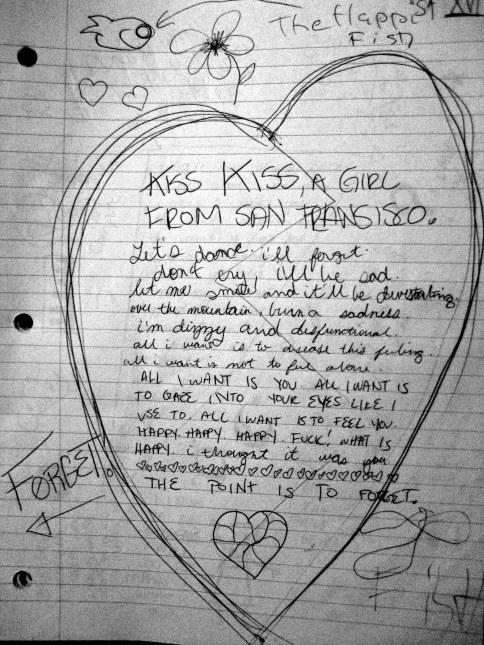 The Happiest
Fish
XVI
KISS KISS, A GIRL
FROM SAN FRANSISCO.
Let's dance. i'll forget.
don't cry, i'll be sad.
let me smile and it'll be devestating.
over the mountain, burn a sadness.
i'm dizzy and disfunctional.
all i want is to disease this feeling.
all i want is not to feel alone.
ALL I WANT IS YOU. ALL I WANT IS
TO GAZE INTO YOUR EYES LIKE I
USE TO. ALL I WANT IS TO FEEL YOU.
HAPPY. HAPPY. HAPPY. FUCK! WHAT IS
HAPPY. i thought it was you
THE POINT IS TO FORGET.
FORGET.